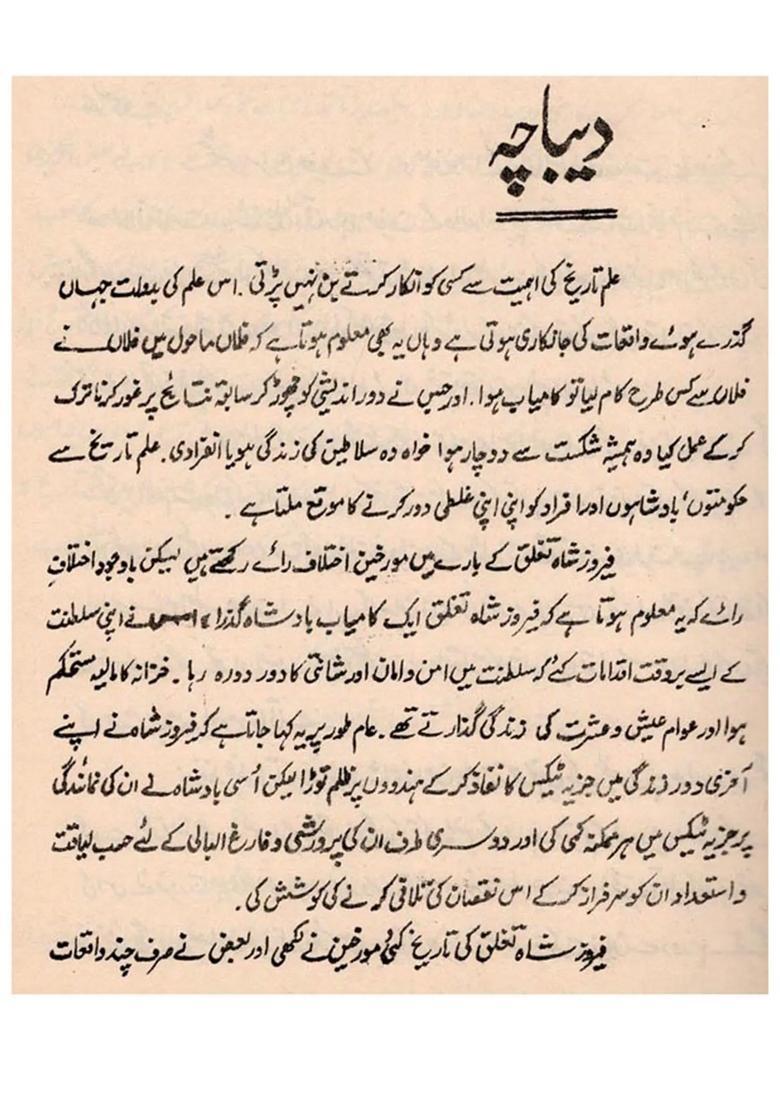 دیباچہ
علم تاریخ کی اہمیت سے کسی کو انکار کرتے بن نہیں پڑتی . اس علم کی بدولت جہاں
گذرے ہوئے واقعات کی جانکاری ہوتی ہے وہاں یہ بھی معلوم ہوتا ہے کہ فلاں ماحول میں فلاں نے
فلاں سے کس طرح کام لیا تو کامیاب ہوا . اور جس نے دور اندیشی کو چھوڑ کر سابقہ نتائج پر غور کرنا ترک
کر کے عمل کیا وہ ہمیشہ شکست سے دوچار ہوا خواہ وہ سلاطین کی زندگی ہو یا انفرادی . علم تاریخ سے
حکومتوں ، بادشاہوں اور افراد کو اپنی اپنی غلطی دور کرنے کا موقع ملتا ہے .
فیروز شاہ تغلق کے بارے میں مورخین اختلاف رائے رکھتے ہیں لیکن باوجود اختلاف
رائے کہ یہ معلوم ہوتا ہے کہ فیروز شاہ تغلق ایک کامیاب بادشاہ گذرا ، اس نے اپنی سلطنت
کے ایسے بروقت اقدامات کئے کہ سلطنت میں امن و امان اور شانتی کا دور دورہ رہا ۔ خزانہ کا مالیہ مستحکم
ہوا اور عوام عیش و عشرت کی زندگی گذارتے تھے ۔ عام طور پر یہ کہا جاتا ہے کہ فیروز شاہ نے اپنے
آخری دور زندگی میں جزیہ ٹیکس کا نفاذ کر کے ہندووں پر ظلم توڑا لیکن اُسی بادشاہ نے ان کی نمائندگی
پر جزیہ ٹیکس میں ہر ممکنہ کمی کی اور دوسری طرف ان کی پرورشی و فارغ البالی کے لئے حسب لیاقت
و استعداد ان کو سرفراز کر کے اس نقصان کی تلافی کرنے کی کوشش کی .
فیروز شاہ تغلق کی تاریخ کئی مورخین نے لکھی اور بعض نے صرف چند واقعات